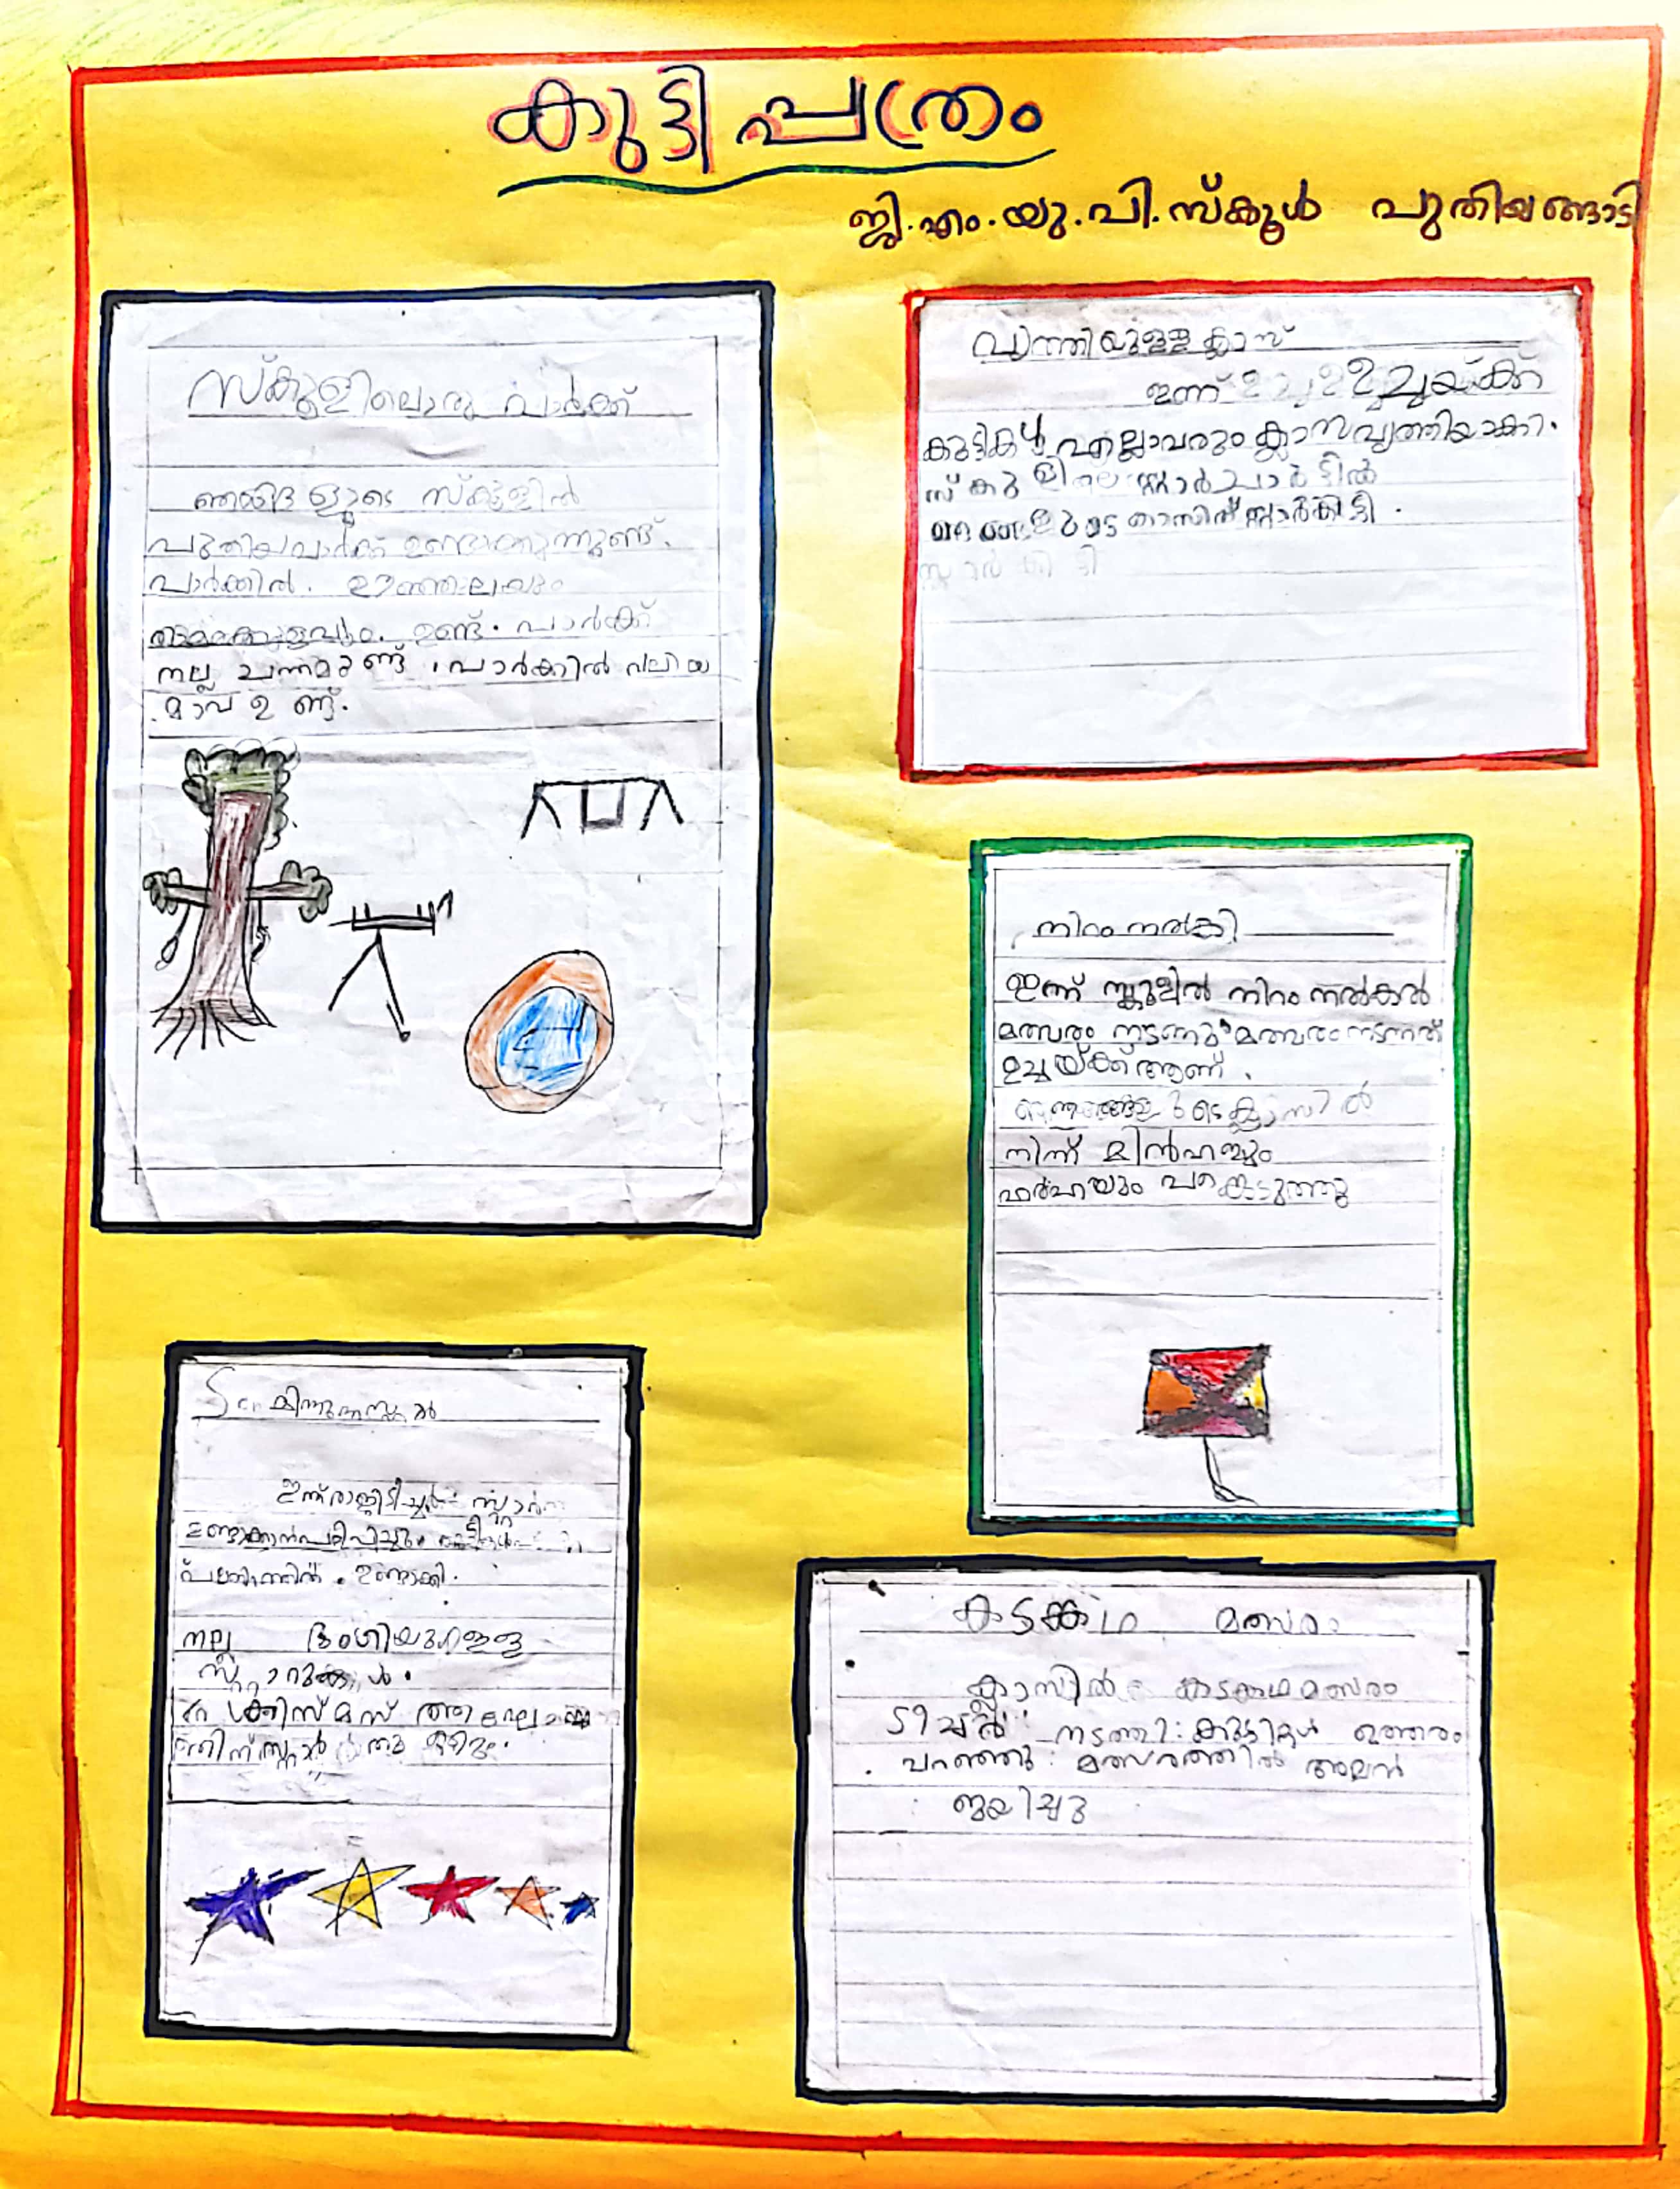 കുട്ടിപ്പത്രം
ജി.എം.യു.പി.സ്കൂൾ പുതിയങ്ങാടി
സ്കൂളിലൊരു പാർക്ക്
ഞങ്ങളുടെ സ്കൂളിൽ
പുതിയപാർക്ക് ഉണ്ടാക്കുന്നുണ്ട്.
പാർക്കിൽ. ഊഞ്ഞാലയും
താമരക്കുളവും. ഉണ്ട്. പാർക്ക്
നല്ല ചന്തമുണ്ട്. പാർക്കിൽ വലിയ
മാവ് ഉണ്ട്.
വൃത്തിയുള്ള ക്ലാസ്
ഇന്ന് ഉച്ചയ്ക്ക്
കുട്ടികൾ എല്ലാവരും ക്ലാസ് വൃത്തിയാക്കി.
സ്കൂളിലെ സ്റ്റാർ ചാർട്ടിൽ
ഞങ്ങളുടെ ക്ലാസിന് സ്റ്റാർ കിട്ടി.
സ്റ്റാർ കിട്ടി
നിറം നൽകി
ഇന്ന് സ്കൂളിൽ നിറം നൽകൽ
മത്സരം നടന്നു മത്സരം നടന്നത്
ഉച്ചയ്ക്ക് ആണ്.
ഞങ്ങളുടെ ക്ലാസിൽ
നിന്ന് മിൻഹയും
ഫർഹയും പങ്കെടുത്തു
മിന്നുന്ന
ഇന്ന് രാജി ടീച്ചർ സ്റ്റാർ
ഉണ്ടാക്കാൻ പഠിപ്പിച്ചു.
ഉണ്ടാക്കി.
നല്ല ഭംഗിയുള്ള
സ്റ്റാറുകൾ.
ക്രിസ്മസ്
സ്റ്റാർ
കടങ്കഥ മത്സരം
ക്ലാസിൽ കടങ്കഥ മത്സരം
ടീച്ചർ നടത്തി: കുട്ടികൾ ഉത്തരം
പറഞ്ഞു: മത്സരത്തിൽ അലൻ
ജയിച്ചു